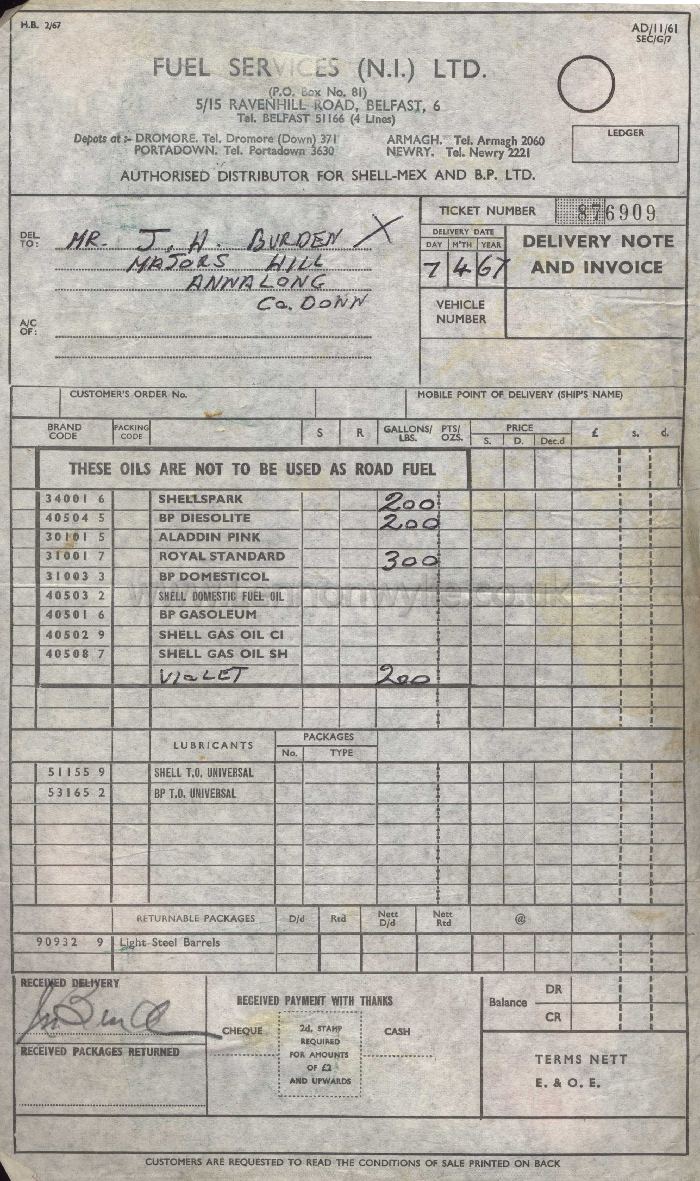 H.B. 2/67
AD/11/61
SEC/G/7
FUEL SERVICES (N.I.) LTD.
(P.O. Box No. 81)
5/15 RAVENHILL ROAD, BELFAST, 6
Tel. BELFAST 51166 (4 Lines)
Depots at :- DROMORE. Tel. Dromore (Down) 371 ARMAGH. Tel. Armagh 2060
PORTADOWN. Tel. Portadown 3630 NEWRY. Tel. Newry 2221
LEDGER
AUTHORISED DISTRIBUTOR FOR SHELL-MEX AND B.P. LTD.
TICKET NUMBER 876909
DEL TO: MR. J. H. BURDEN X
MAJORS HILL
ANNALONG
Co. DOWN
A/C OF:
DELIVERY DATE
DAY M'TH YEAR
7 4 67
DELIVERY NOTE
AND INVOICE
VEHICLE NUMBER
CUSTOMER'S ORDER No. MOBILE POINT OF DELIVERY (SHIP'S NAME)
BRAND CODE PACKING CODE S R GALLONS/ LBS. PTS/ OZS. PRICE S. D. Dec.d £ s. d.
THESE OILS ARE NOT TO BE USED AS ROAD FUEL
34001 6 SHELLSPARK 200
40504 5 BP DIESOLITE 200
30101 5 ALADDIN PINK
31001 7 ROYAL STANDARD 300
31003 3 BP DOMESTICOL
40503 2 SHELL DOMESTIC FUEL OIL
40501 6 BP GASOLEUM
40502 9 SHELL GAS OIL CI
40508 7 SHELL GAS OIL SH
VIOLET 200
LUBRICANTS PACKAGES
No. TYPE
51155 9 SHELL T.O. UNIVERSAL
53165 2 BP T.O. UNIVERSAL
RETURNABLE PACKAGES D/d Rtd Nett D/d Nett Rtd @
90932 9 Light Steel Barrels
RECEIVED DELIVERY
RECEIVED PACKAGES RETURNED
RECEIVED PAYMENT WITH THANKS
CHEQUE CASH
2d. STAMP
REQUIRED
FOR AMOUNTS
OF £2
AND UPWARDS
Balance DR
CR
TERMS NETT
E. & O. E.
CUSTOMERS ARE REQUESTED TO READ THE CONDITIONS OF SALE PRINTED ON BACK